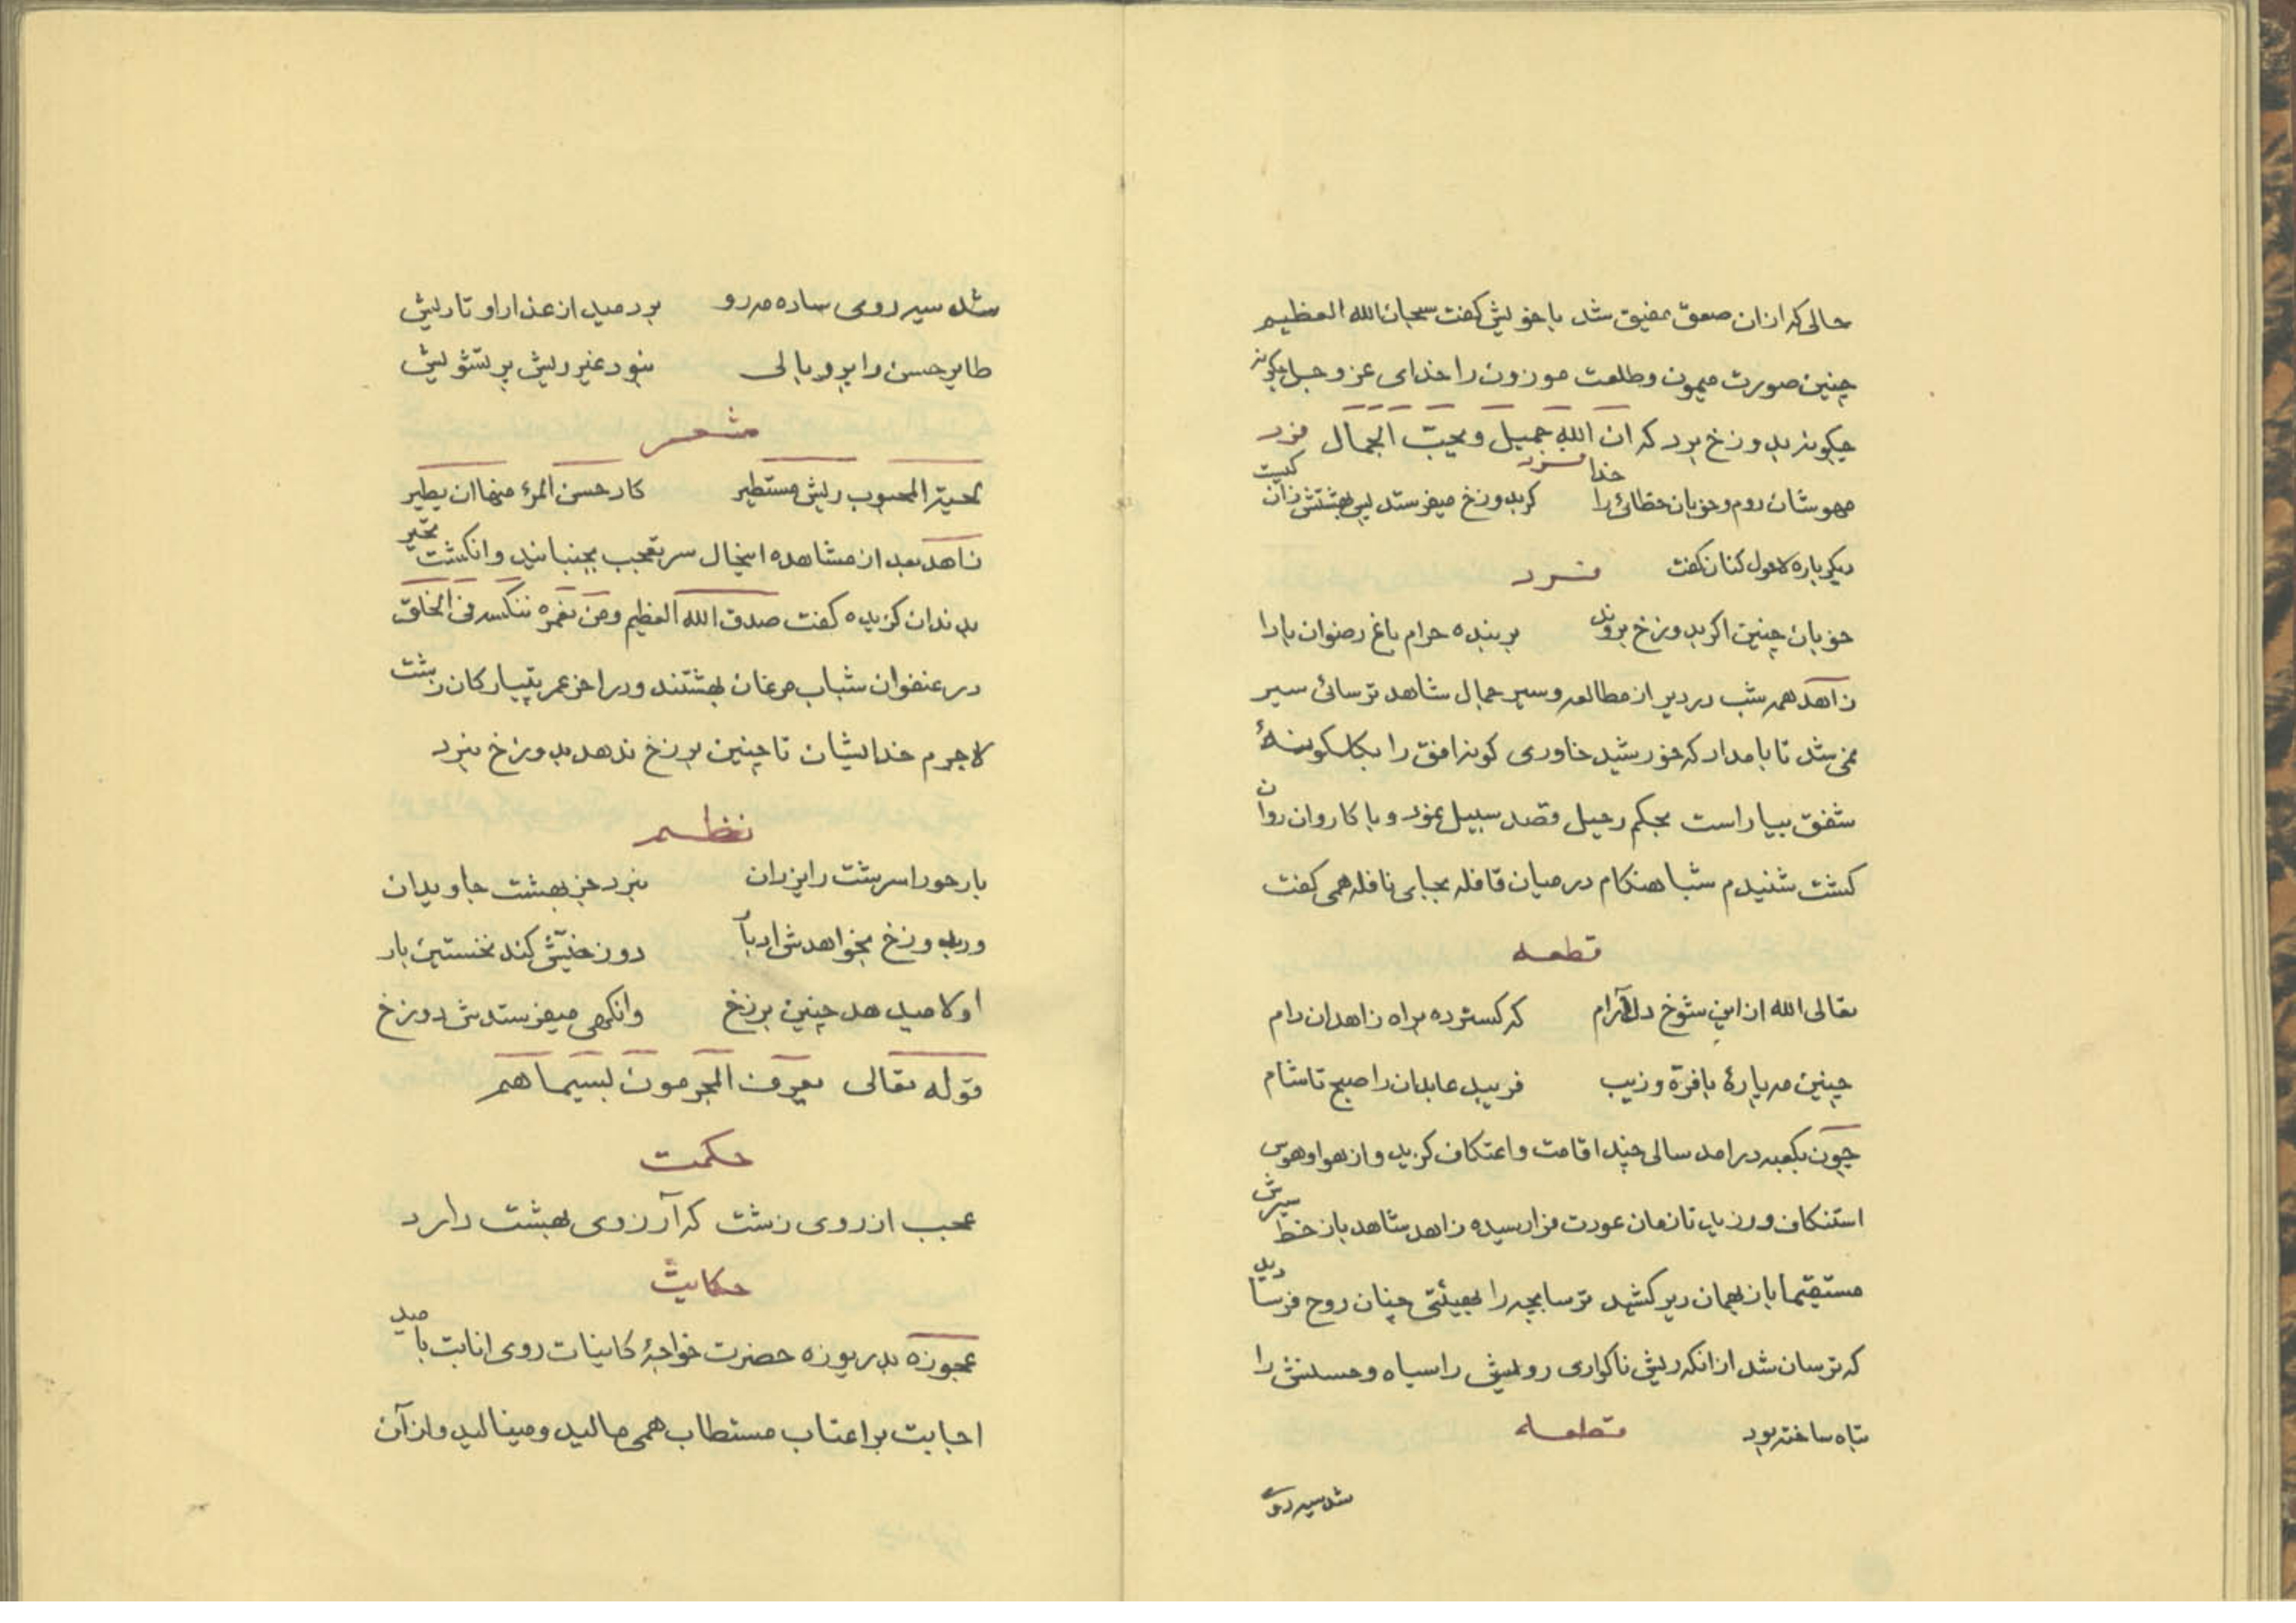 حالی که ازان صعق مفیق شد با خویش گفت سبحان الله العظیم
چنین صورت میمون و طلعت موزون را خدای عز و جل چگونه
چگونه بدوزخ برد که ان الله جمیل و یحب الجمال فرد
مهوشان روم و خوبان خطائی را خدا گر بدوزخ میفرستد پس بهشتش زان کیست
دیگر باره لاحول کنان گفت فرد
خوبان چنین اگر بدوزخ بروند بر بنده حرام باغ رضوان بادا
زاهد همه شب در دیر از مطالعه و سیر جمال شاهد ترسائی سیر
نمی شد تا بامداد که خورشید خاوری گونه افق را بگلگونهٔ
شفق بیاراست بحکم رحیل قصد سبیل نمود و با کاروان روان
گشت شنیدم شباهنگام در میان قافله بجای نافله همی گفت
قطعه
تعالی الله ازین شوخ دلارام که گسترده براه زاهدان دام
چنین مه پارهٔ با فرّه و زیب فریبد عابدان را صبح تا شام
چون بکعبه درامد سالی چند اقامت و اعتکاف گزید و از هوا و هوس
استنکاف ورزید تا زمان عودت فرارسیده زاهد شاهد باز خط سیرش
مستقیما بازبهمان دیر کشید ترسا بچه را بهیئتی چنان روح فرسا دید
که ترسان شد ازانکه ریش ناگواری رویش را سیاه و حسنش را
تباه ساخته بود قطعه
شد سیه روی
شد سیه روی ساده مه رو بردمید از عذار او تا ریش
طایر حسن را پر و بالی نبود غیر ریش پر تشویش
شعر
لحیة المحبوب ریش مستطیر کاد حسن المرء منها ان یطیر
زاهد بعد از مشاهده اینحال سر تعجب بجنبانید و انگشت تحیر
بدندان گزیده گفت صدق الله العظیم و من نعمره ننکسه فی الخلق
در عنفوان شباب مرغان بهشتند و در اخر عمر پتیارگان زشت
لاجرم خدا ایشان تا چنین برزخ ندهد بدوزخ نبرد
نظم
یار حورا سرشت را یزدان نبرد جز بهشت جاویدان
ور بدوزخ بخواهدش ادبار دوزخیش کند نخستین بار
اولا میدهد چنین برزخ وانگهی میفرستدش دوزخ
قوله تعالی یعرف المجرمون بسیماهم
حکمت
عجب از روی زشت که آرزوی بهشت دارد
حکایت
عجوزه بدریوزه حضرت خواجهٔ کاینات روی انابت بامید
اجابت بر اعتاب مستطاب همی مالید و مینالید و از آن